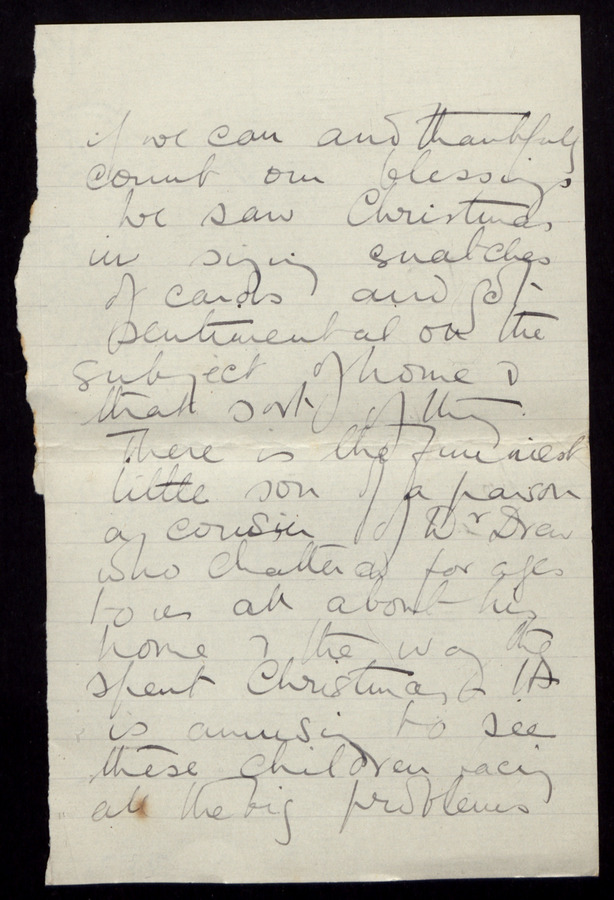 if we can and thankfully
count our blessings
We saw Christmas
in singing snatches
of carols and got
sentimental on the
subject of home &
that sort of thing.
There is the funniest
little son of a parson
a cousin of Dr Drew
who chattered for ages
to us all about his
home & the way they
spent Christmas. It
is amusing to see
these children facing
all the big problems